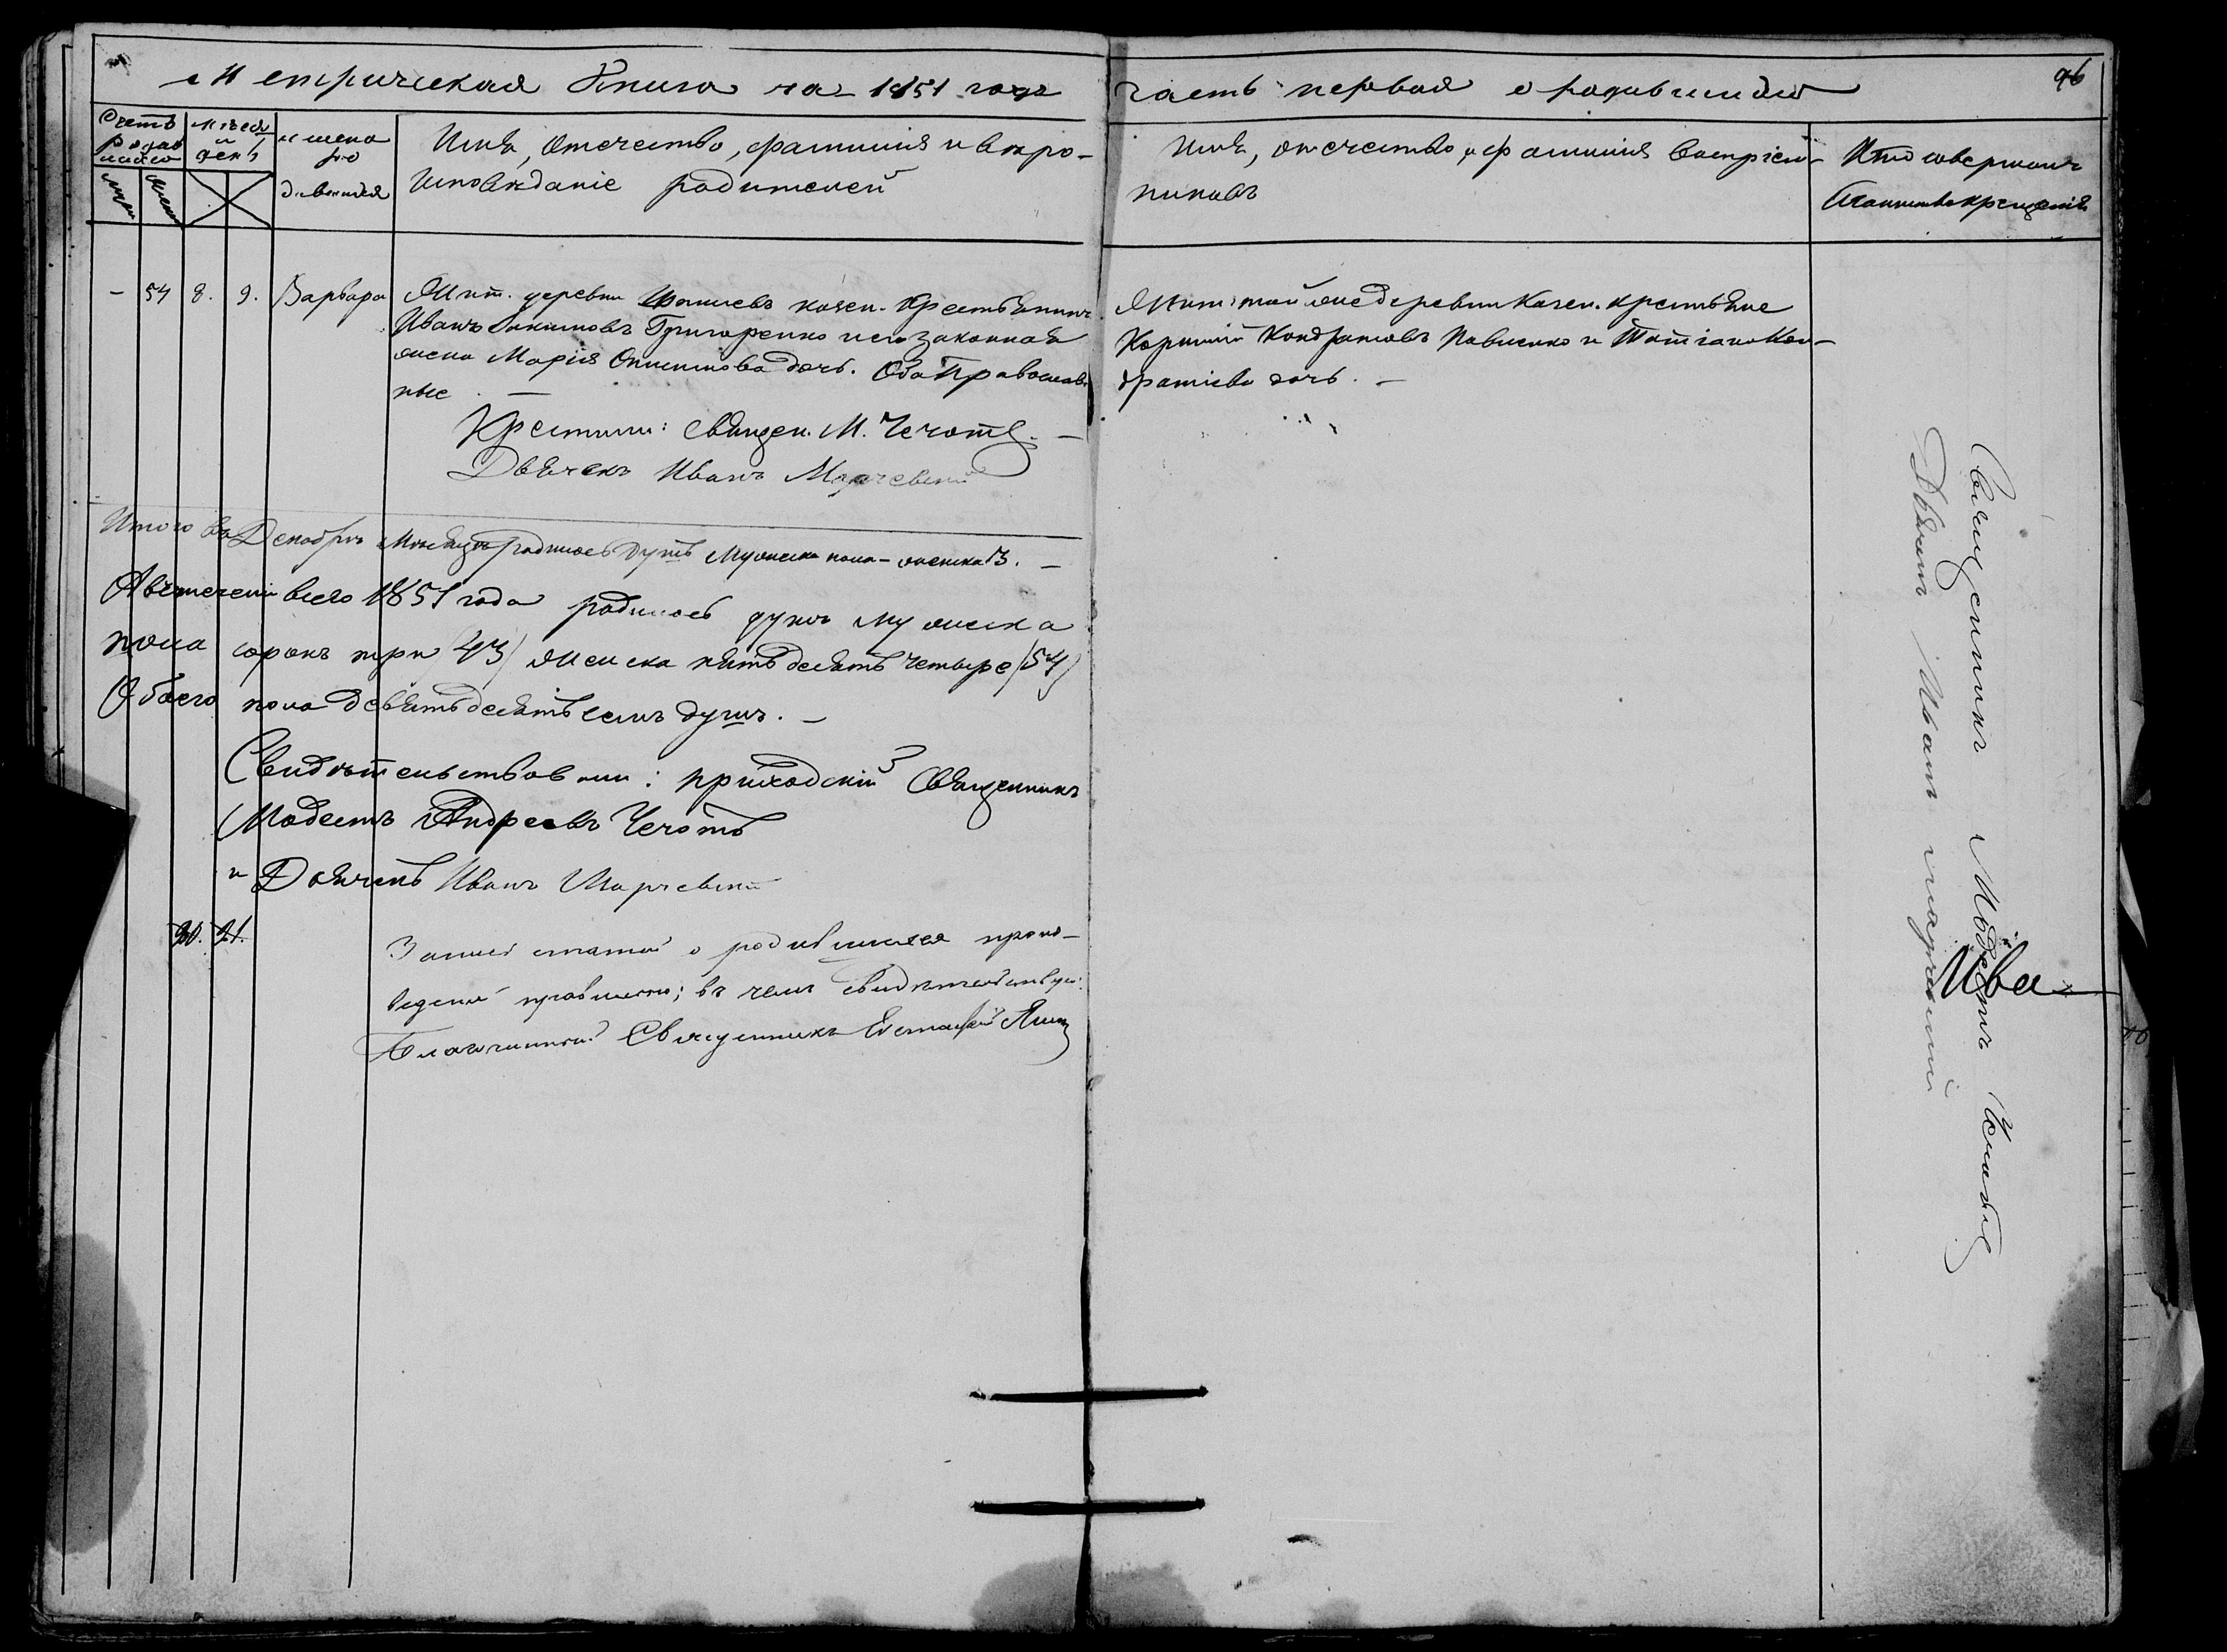 Метрическая Книга на 1851 годъ часть первая о родившихся
96
Счетъ родившихся
Мѣсяцъ и день
Имена родившихся
Имя, Отчество, фамилія и вѣроисповѣданіе родителей
Имя, отчество, и фамилія Воспріемниковъ
Кто совершалъ Таинство крещенія
– 54 8. 9. Варвара
Жит. деревни казен. крестьянинъ
Иванъ Григоренко и его законная
жена Марія дочь. Оба Православные. —
Жит. той же деревни Казен. крестьяне
Кондратовъ Павленко и Татіана Кондратіева дочь. —
Крестили: Священ. М. Чечотъ. —
Дьячекъ Иванъ Марчевскій
Итого въ Декабрѣ Мѣсяцѣ родилось душъ Мужеска пола – женска 3. —
А въ теченіи всего 1851 года родилось душъ мужеска
пола сорокъ три /43/ женска пятьдесятъ четыре /54/
Обоего пола девятьдесятъ семъ душъ. —
Свидѣтельствовали: приходскій Священникъ
Модестъ Андреевъ Чечотъ
и Дьячекъ Иванъ Марчевскій
20. 21.
Записи статей о родившихся произ-
ведены правильно; въ чемъ свидѣтельствую:
Благочинный Священникъ Евстафій
Священникъ Модестъ Чечотъ
Дьячекъ Иванъ Марчевскій
Ива